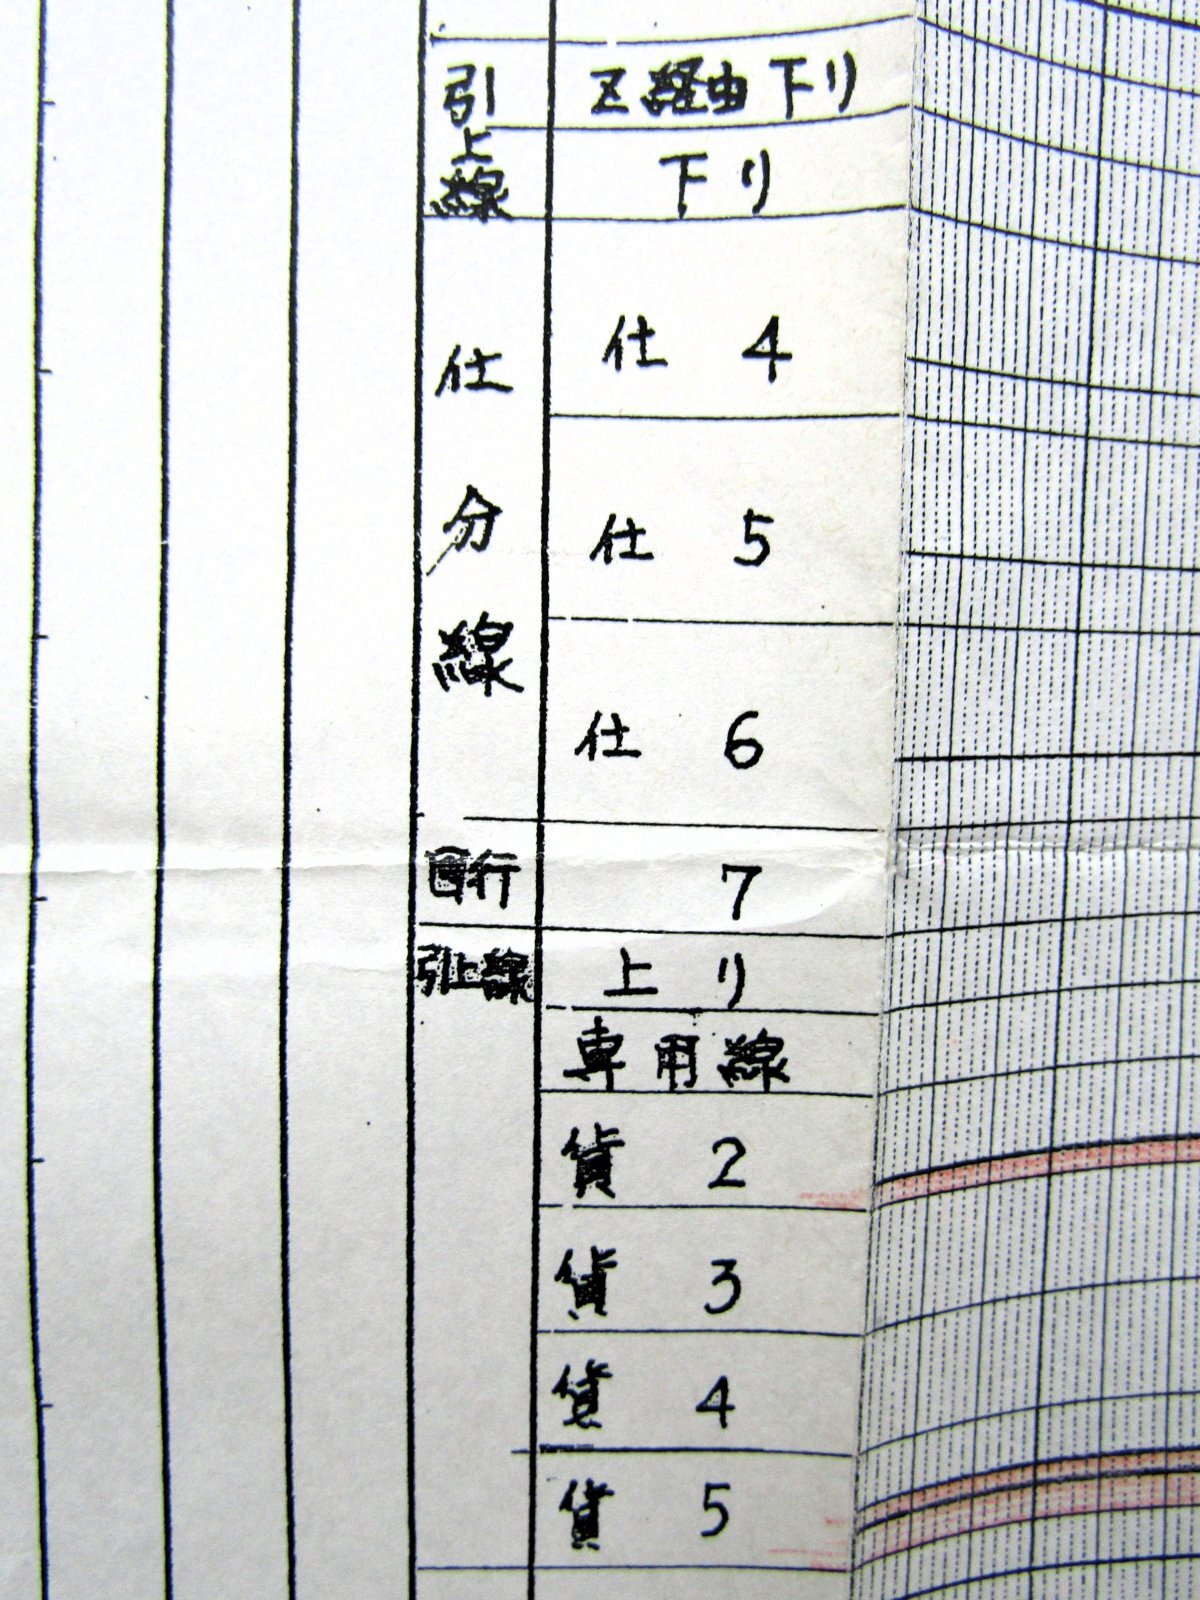 引上線
Z経由下り
下り
仕分線
仕 4
仕 5
仕 6
行
7
引上線
上り
専用線
貨 2
貨 3
貨 4
貨 5